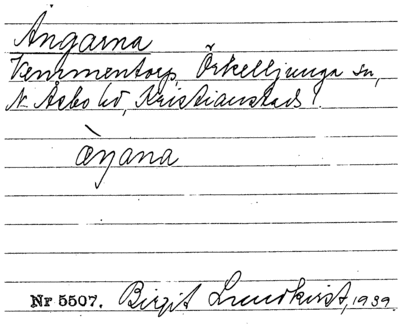 Ängarna
Vemmentorp, Örkelljunga sn,
N. Åsbo hd, Kristianstads l.
æ̀ŋana
Nr 5507. Birgit Lundkvist, 1939.